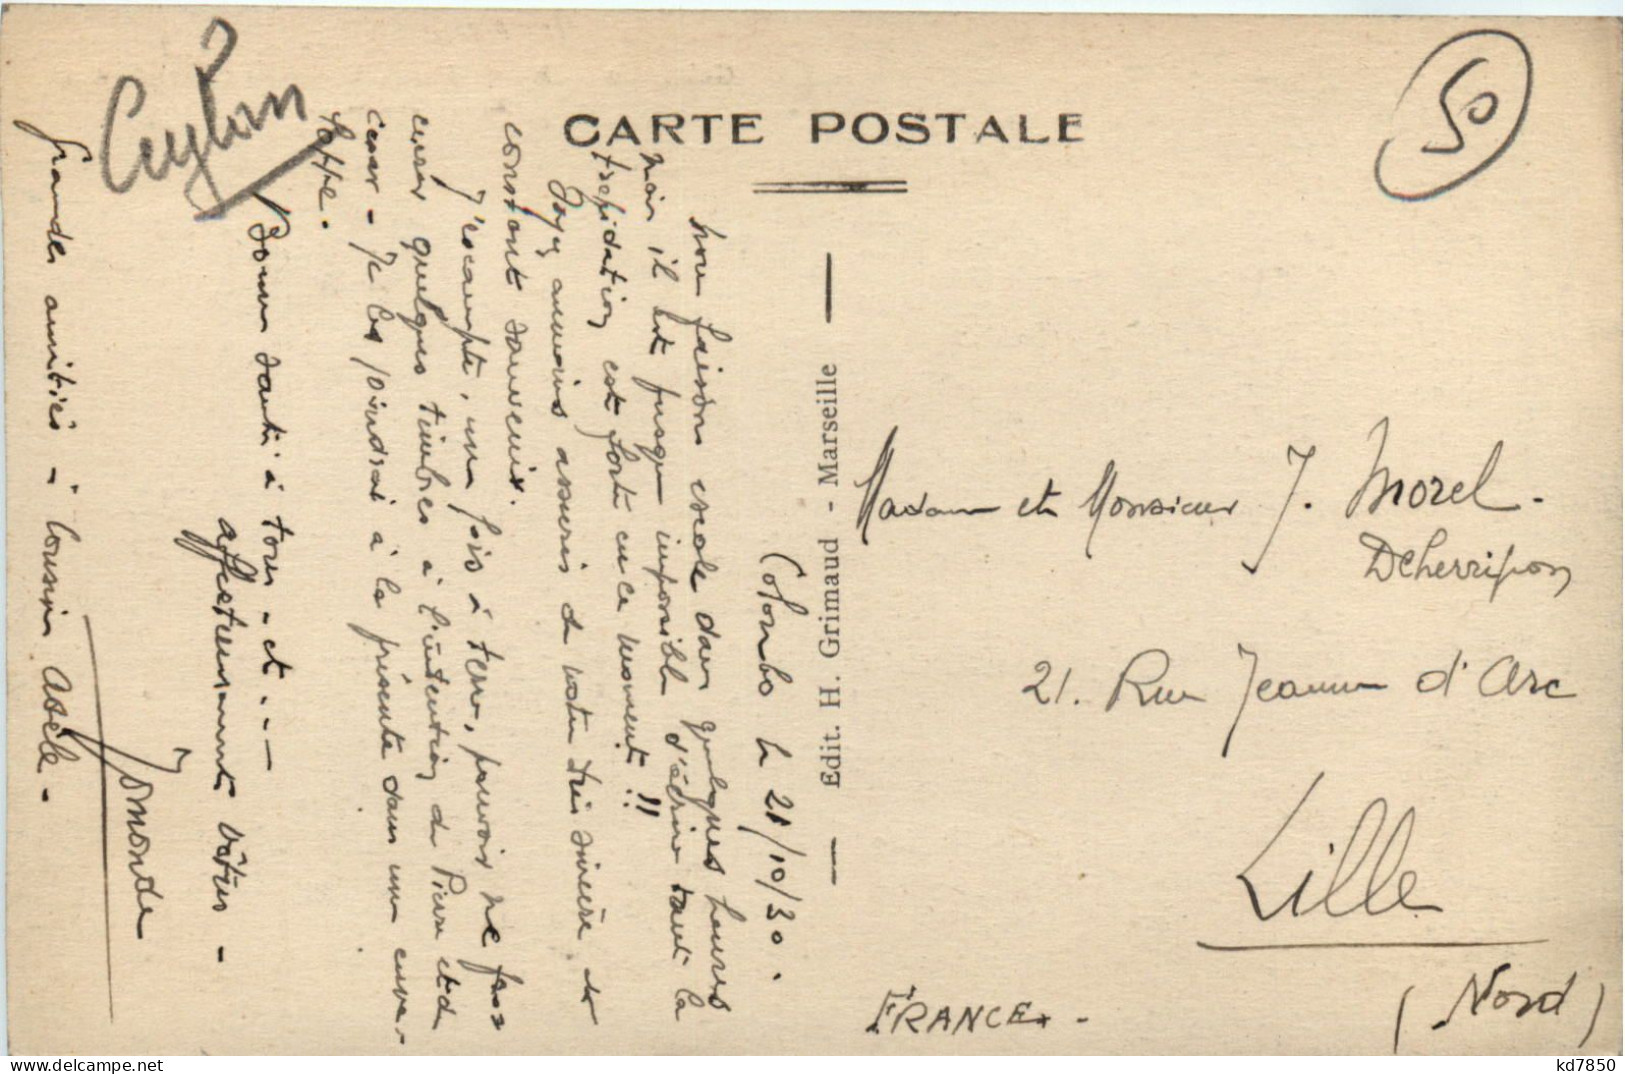 Ceylan
50
CARTE POSTALE
Edit. H. Grimaud - Marseille
Colombo le 21/10/30.
Nous faisons escale dans quelques heures
mais il est presque impossible d'écrire tant la
trépidation est forte en ce moment !!
Soyez assurés de notre très sincère et
constant souvenir.
J'escompte, une fois à terre, pouvoir me
quelques timbres à l'intention de Pierre et d
- Je les joindrai à la présente dans une enve-
loppe.
Bonne santé à tous - et ...
affectueusement vôtres -
Jonorde
Grandes amitiés à Cousin Adèle -
Madame et Monsieur J. Morel -
Deherripon
21. Rue Jeanne d'Arc
Lille
(Nord)
FRANCE -
kd7850